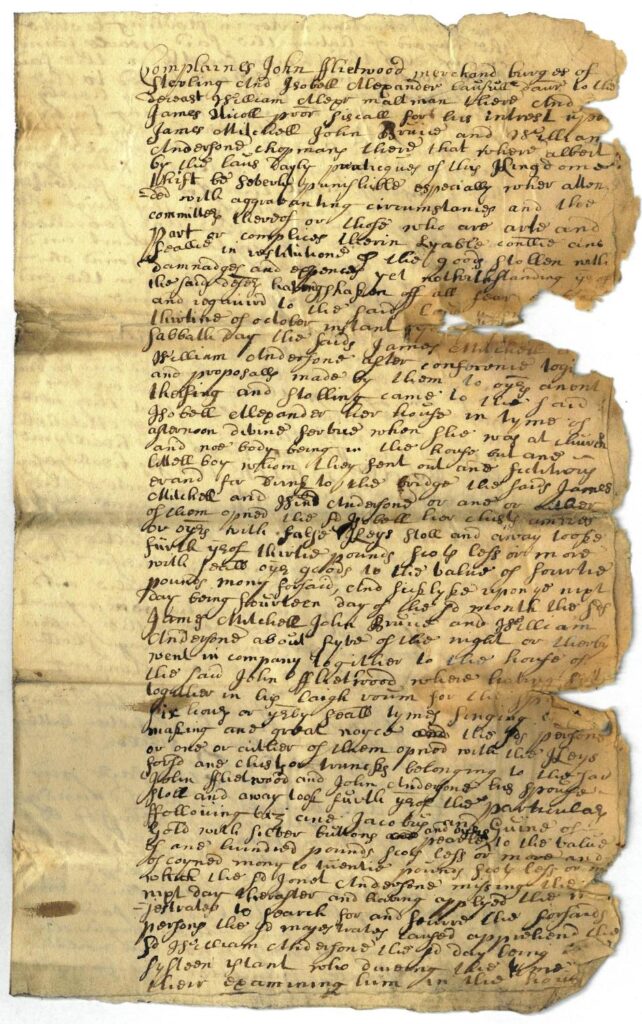 Complaines John Flietwood merchand burges of
Sterling And Isobell Alexander laufull daur to the
deceast William Alexr maltman there And
James Nicoll pror fiscall for his intrest upon
James Mitchell John Bruce and William
Andersone chopmans there that where albeit
by the laus dayly practicques of this Kingdome
thift be severly punishable especially when atten
ded with aggravanting circumstancies and the
committers thereof or those who are arte and
part or complices therin lyable
in restitutione of the goods stollen with
damnadges and expences yet nothwithstanding yrof
the saids defrs having shaken off all fear
and regaird to the said
thirtine of october instant
sabbath day the saids James Mitchell
William Andersone after conference togi
and proposalls made by them to oyrs anent
theifing and stolling came to the said
Isobell Alexander her house in tyme of
afternoon divine service when she was at church
and noe body being in the house but ane
littell boy whom they sent out ane
erand to the bridge the saids James
Mitchell and Andersone or ane or
of them opned the sd Isobell her chist
or oyrs with false Keys stoll and away tooke
furth yrof thirtie pounds scots less or more
with seall oyr goods to the value of fourtie
pounds mony forsaid, And sicklyke upon ye nixt
day being fourteen day of the sd month the sds
James Mitchell John Bruce and William
Andersone about fyve of the night or therby
went in company togither to the house of
the said John Flietwood where having
together in his laigh roum for the
six hours or yrby seall tymes singing
making ane great noyce and the sds persons
or one or of them opned with the Keys
forsd ane chist or trunck belonging to the said
John Flietwood and John Andersone his spouse
stoll and away took furth yrof the particulars
following viz ane Jacobus and Guine of
Gold with silver buttons and oyrs to the value
of ane hundred pounds scots less or more and
of coyned mony to tuentie pounds scots less or m
which the sd Jonet Andersone missing the
nixt day therafter and having applyed the m
jestrates to search for and the forsaids
persons the sd majestrates caused apprehend the
sd William Andersone the sd day being
fyfteen istant who dureing the tyme
their examining him in the hous